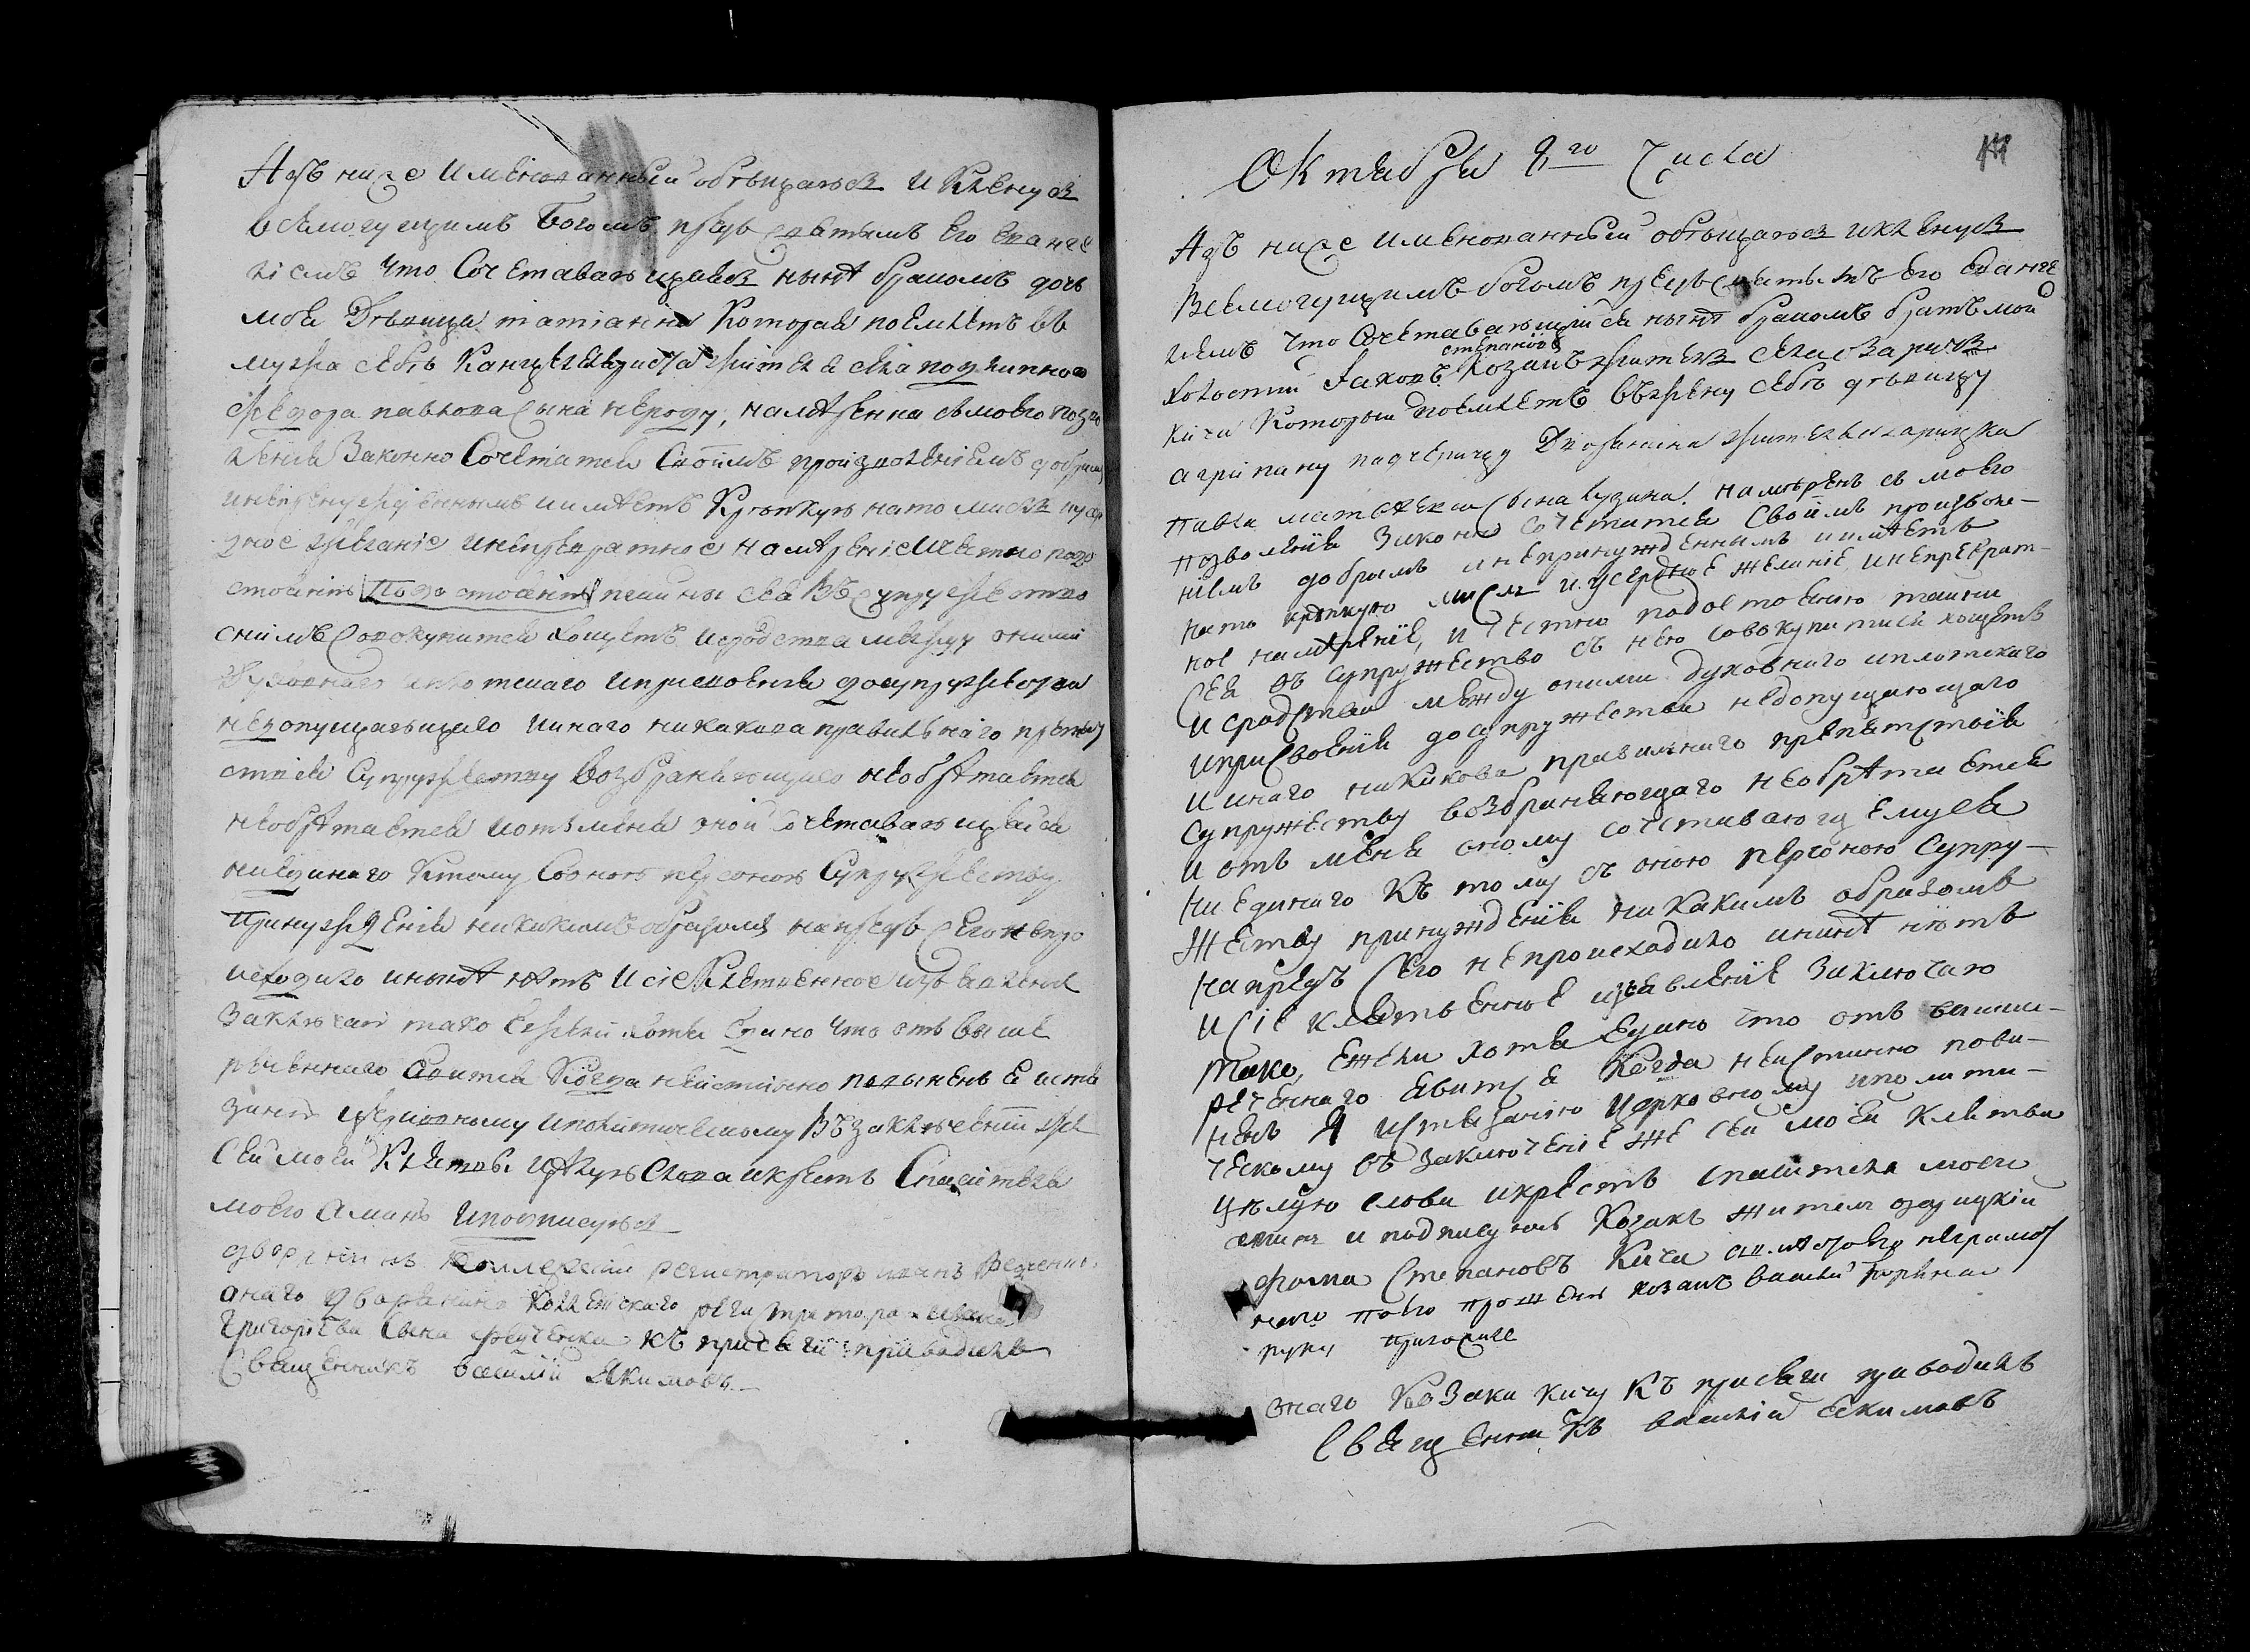 Азъ ниже именованный обѣщаюся и кленуся
всемогущимъ Богомъ предъ святымъ Его Еванге
ліемъ что Сочетавающаяся нынѣ бракомъ дочь
моя Дѣвица татіанна Которая поемлетъ въ
мужа себѣ Канцеляриста жителя села
павлова сына намѣренна съ моего позво
ленія Законно Сочетатся Своимъ произволеніемъ добрымъ
и непринужденнымъ и имѣетъ Крѣпкую на то мысль
дное желаніе и непревратное намѣреніе и честно подо
стоянію подостоянію тайны сея Въ супружество
снимъ Совокупится хощетъ и сродства между оними
духовнаго и плотскаго и присвоенія до супружества
недопущающаго и инаго никакова правильнаго препят
ствія Супружеству возбраняющаго необрѣтается
необрѣтается и отъ меня оной Сочетавающейся
ниединаго Ктому Сооною персоною Супружеству
принужденія никакимъ образомъ напредъ Сего непро
исходило и нынѣ нѣтъ И сіе Клятвенное изъявленіе
Заключаю тако Ежели хотя Едино что отъ выше
реченнаго Явится Когда неистинно повиненъ я истя
занію церковному и политическому Въ заключеніи же
Сей моей Клятвы цѣлую Слова и крестъ Спасителя
моего Аминь И подписуюся
дворянинъ Коллегскій регистраторъ иванъ
онаго дворянина Коллежскаго регистратора ивана
Григоріева сына къ присяги приводилъ
Священникъ василій Якимовъ

Октября 8го Числа
Азъ ниже именованный обѣщаюся и кленуся
Всемогущимъ богомъ предъ святымъ Его Еванге
ліемъ что Сочетавающійся нынѣ бракомъ братъ мой
степановъ
холостій Іаковъ Козакъ житель села
Кича Который поемлетъ въ жену себѣ дѣвицу
агрипину падчерицу жителя
павла сына намѣренъ съ моего
позволенія Законно сочетатся Своимъ произволе-
ніемъ добрымъ и непринужденнымъ и имѣетъ
на то крѣпкую мысль и усердное желаніе и непреврат-
ное намѣреніе, и честно подостоянію тайны
Сея въ супружество съ нею совокупитися хощетъ
и сродства между оними духовнаго и плотскаго
и присвоенія до супружества недопущающаго
и инаго никакова правильнаго препятствія
Супружеству возбраняющаго необрѣтается
и отъ меня оному сочетавающемуся
ниединаго Къ тому съ оною персоною Супру-
жеству принужденія никакимъ образомъ
напредъ Сего непроисходило и нынѣ нѣтъ
И Сіе клятвенное изъявленіе Заключаю
тако, Ежели хотя Едино что отъ выше-
реченнаго Явится Когда неистинно пови-
ненъ Я истязанію Церковному и полити-
ческому въ Заключеніе же Сей моей Клятвы
цѣлую слова и крестъ спасителя моего
аминь и подписуюсь Козакъ житель
Фома Степановъ Кича а вместо его неграмот
наго поего прошению козакъ василій
руку приложилъ
онаго Козака Кичу Къ присяги приводилъ
Священникъ василій Екимовъ